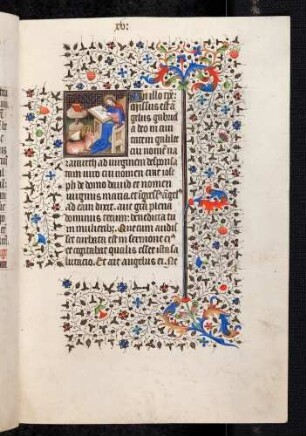 xv:
In illo tpr.
missus est ā
gelus gabriel
a deo in ciui
tatem galilee
cui nomē na
zareth ad virginem desponsa
tam viro cui nomen erat iose
ph de domo dauid et nomen
virginis maria. et īgress' āgel'
ad eam dixit. aue gr̄a plena
dominus tecum: benedicta tu
in mulierib;. Que cum audis
set turbata est in sermone ei'
et cogitabat qualis esset ista sa
lutacio. Et ait angelus ei. Ne